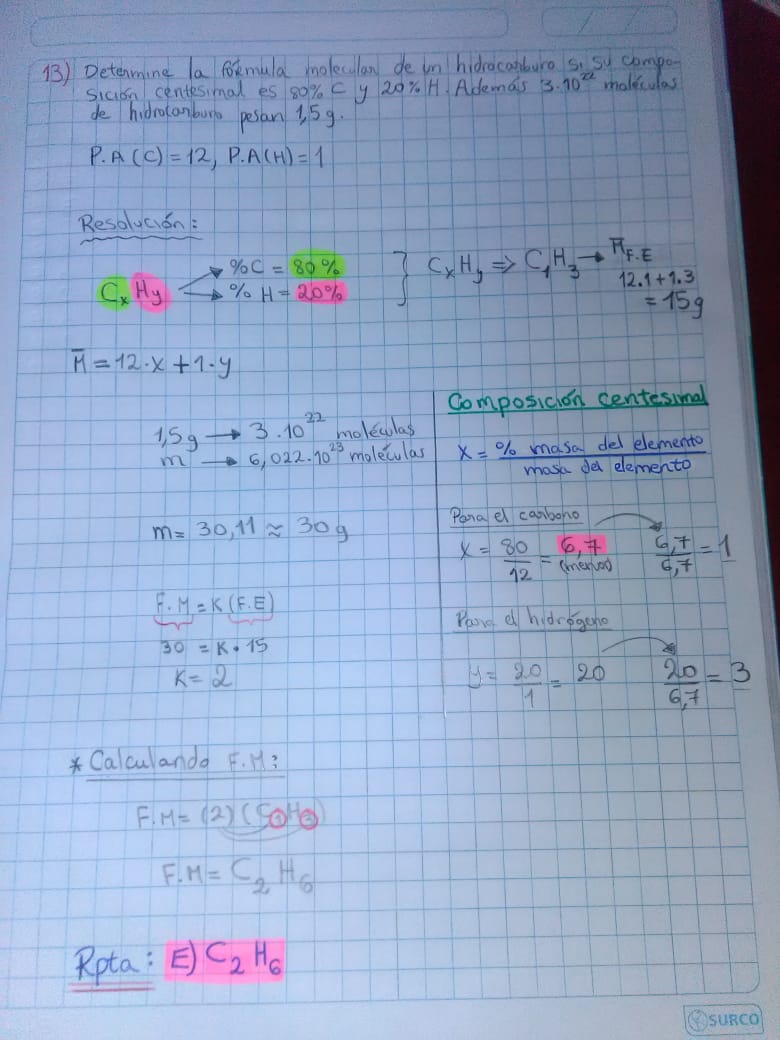 13) Determine la fórmula molecular de un hidrocarburo si su compo-
sición centesimal es 80% C y 20% H. Además 3.10²² moléculas
de hidrocarburo pesan 1,5g.
P.A(C)=12, P.A(H)=1
Resolución:
CxHy
%C = 80%
% H = 20%
} CxHy ⇒ C₁H₃ → M̄F.E
12.1+1.3
= 15g
M̄ = 12·x + 1·y
1,5g → 3.10²² moléculas
m → 6,022.10²³ moléculas
m = 30,11 ≈ 30g
F.M = K (F.E)
30 = K • 15
K = 2
Composición centesimal
X = % masa del elemento
masa del elemento
Para el carbono
X = 80/12 = 6,7 (menor) 6,7/6,7 = 1
Para el hidrógeno
y = 20/1 = 20 20/6,7 = 3
* Calculando F.M:
F.M = (2) (C₁H₃)
F.M = C₂H₆
Rpta: E) C₂H₆
SURCO